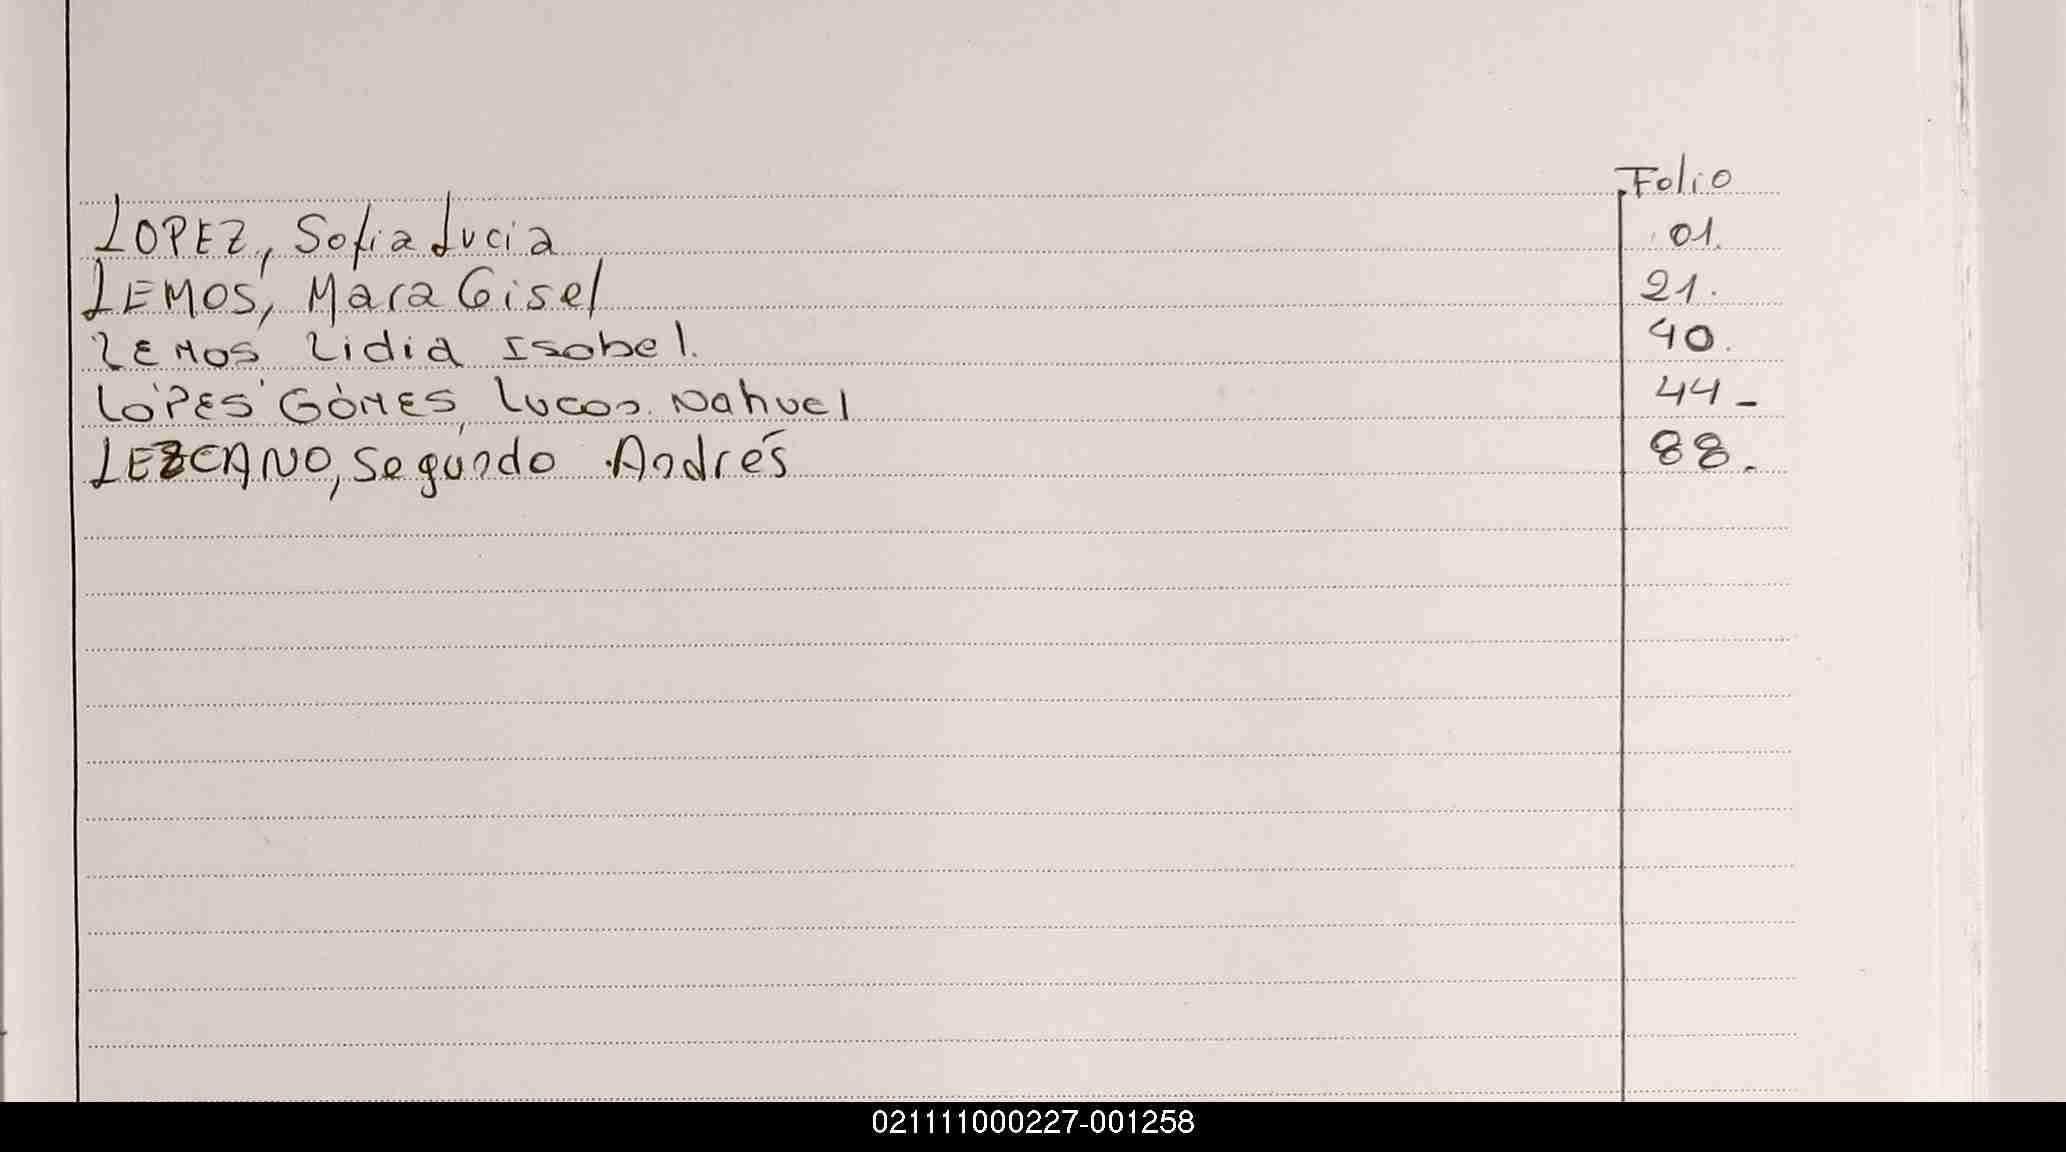 Folio
LOPEZ, Sofia Lucia 01.
LEMOS, Mara Gisel 21.
LEMOS Lidia Isabel. 40.
LÓPES GÓMES, Lucas Nahuel 44-
LEZCANO, Segundo Andrés 88.
021111000227-001258